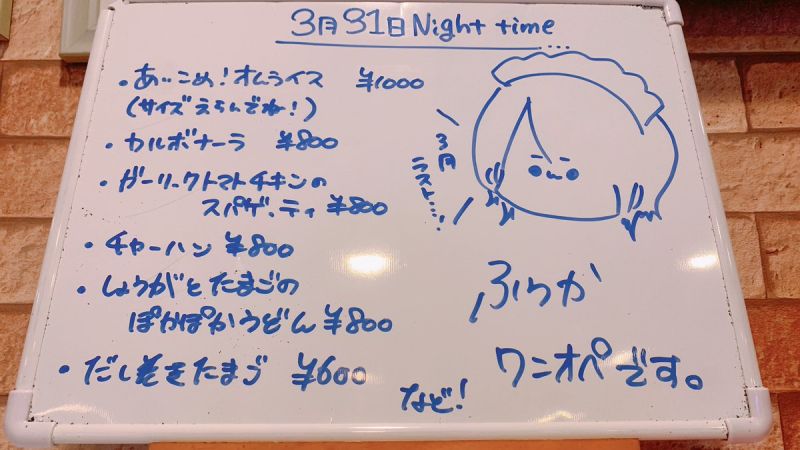 3月31日 Night time
・あいこめ!オムライス ¥1000
(サイズえらんでね!)
・カルボナーラ ¥800
・ガーリックトマトチキンの
スパゲッティ ¥800
・チャーハン ¥800
・しょうがとたまごの
ぽかぽかうどん ¥800
・だし巻きたまご ¥600
など!
3月
ラスト…!
ふうか
ワンオペです。